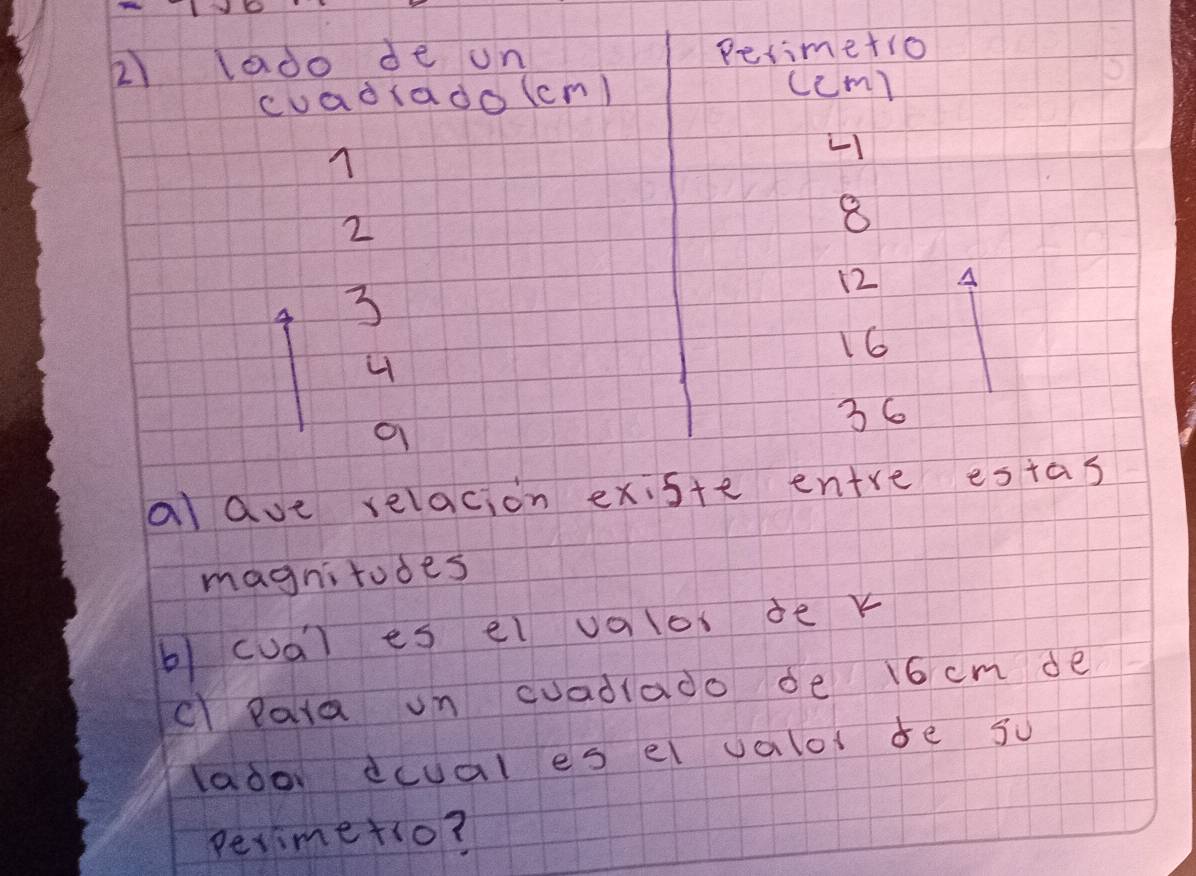 2) lado de un cuadrado (cm) Perimetro (cm)
1 4
2 8
3 12
4 16
9 36
a) Que relación existe entre estas
magnitudes
b) cuál es el valor de k
c) Para un cuadrado de 16 cm de
lado. ¿cual es el valor de su
perimetro?